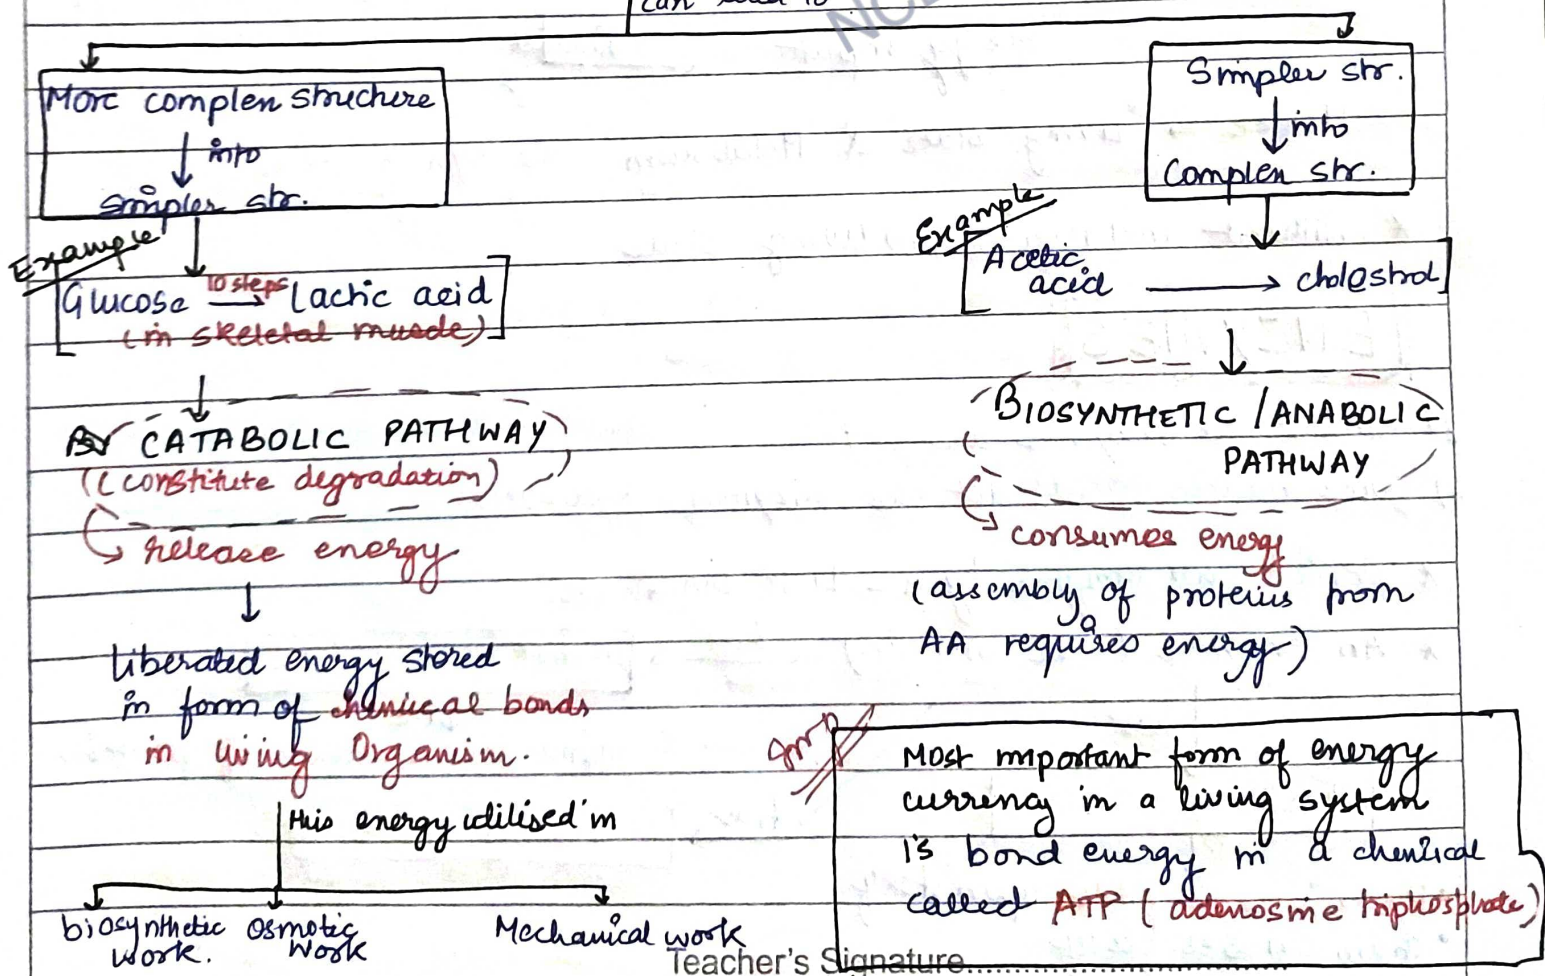 can lead to
NCE
More complen structure
into
simpler str.
Example
Glucose 10 steps Lactic acid
(in skeletal muscle)
CATABOLIC PATHWAY
(constitute degradation)
release energy
liberated energy stored
in form of chemical bonds
in living Organism.
this energy utilised in
biosynthetic work.
Osmotic work
Mechanical work
Simpler str.
into
Complen str.
Example
Acetic acid cholestrol
BIOSYNTHETIC / ANABOLIC
PATHWAY
consumes energy
(assembly of proteins from
AA requires energy)
Imp
Most important form of energy
currency in a living system
is bond energy in a chemical
called ATP (adenosine triphosphate)
Teacher's Signature